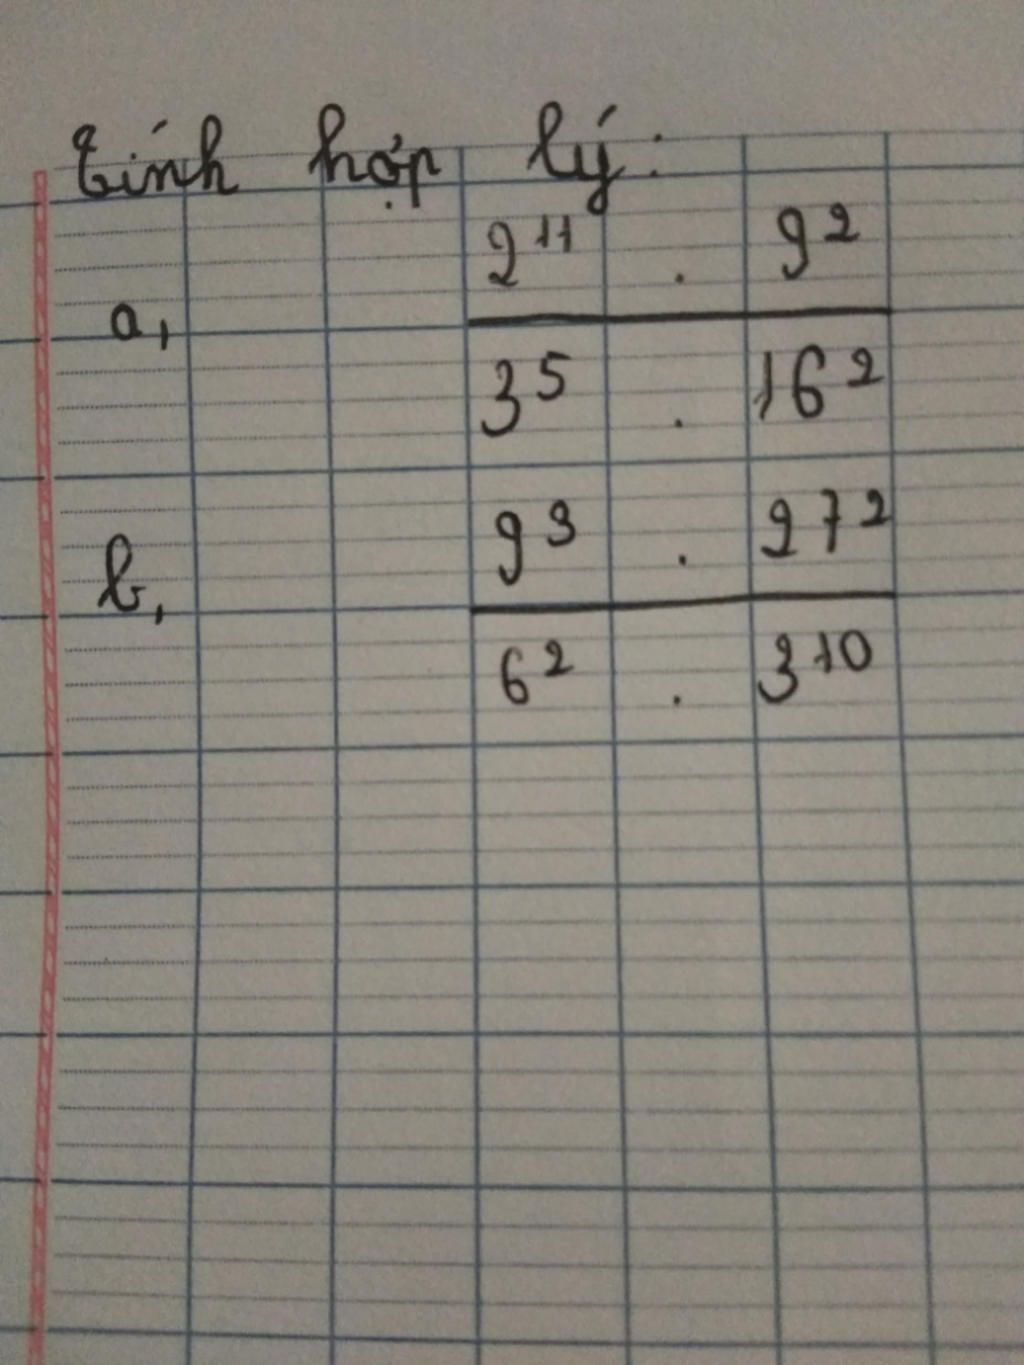 Tính hợp lý:
2¹¹ . 9²
a,
3⁵ . 16²
9³ . 27²
b,
6² . 3¹⁰